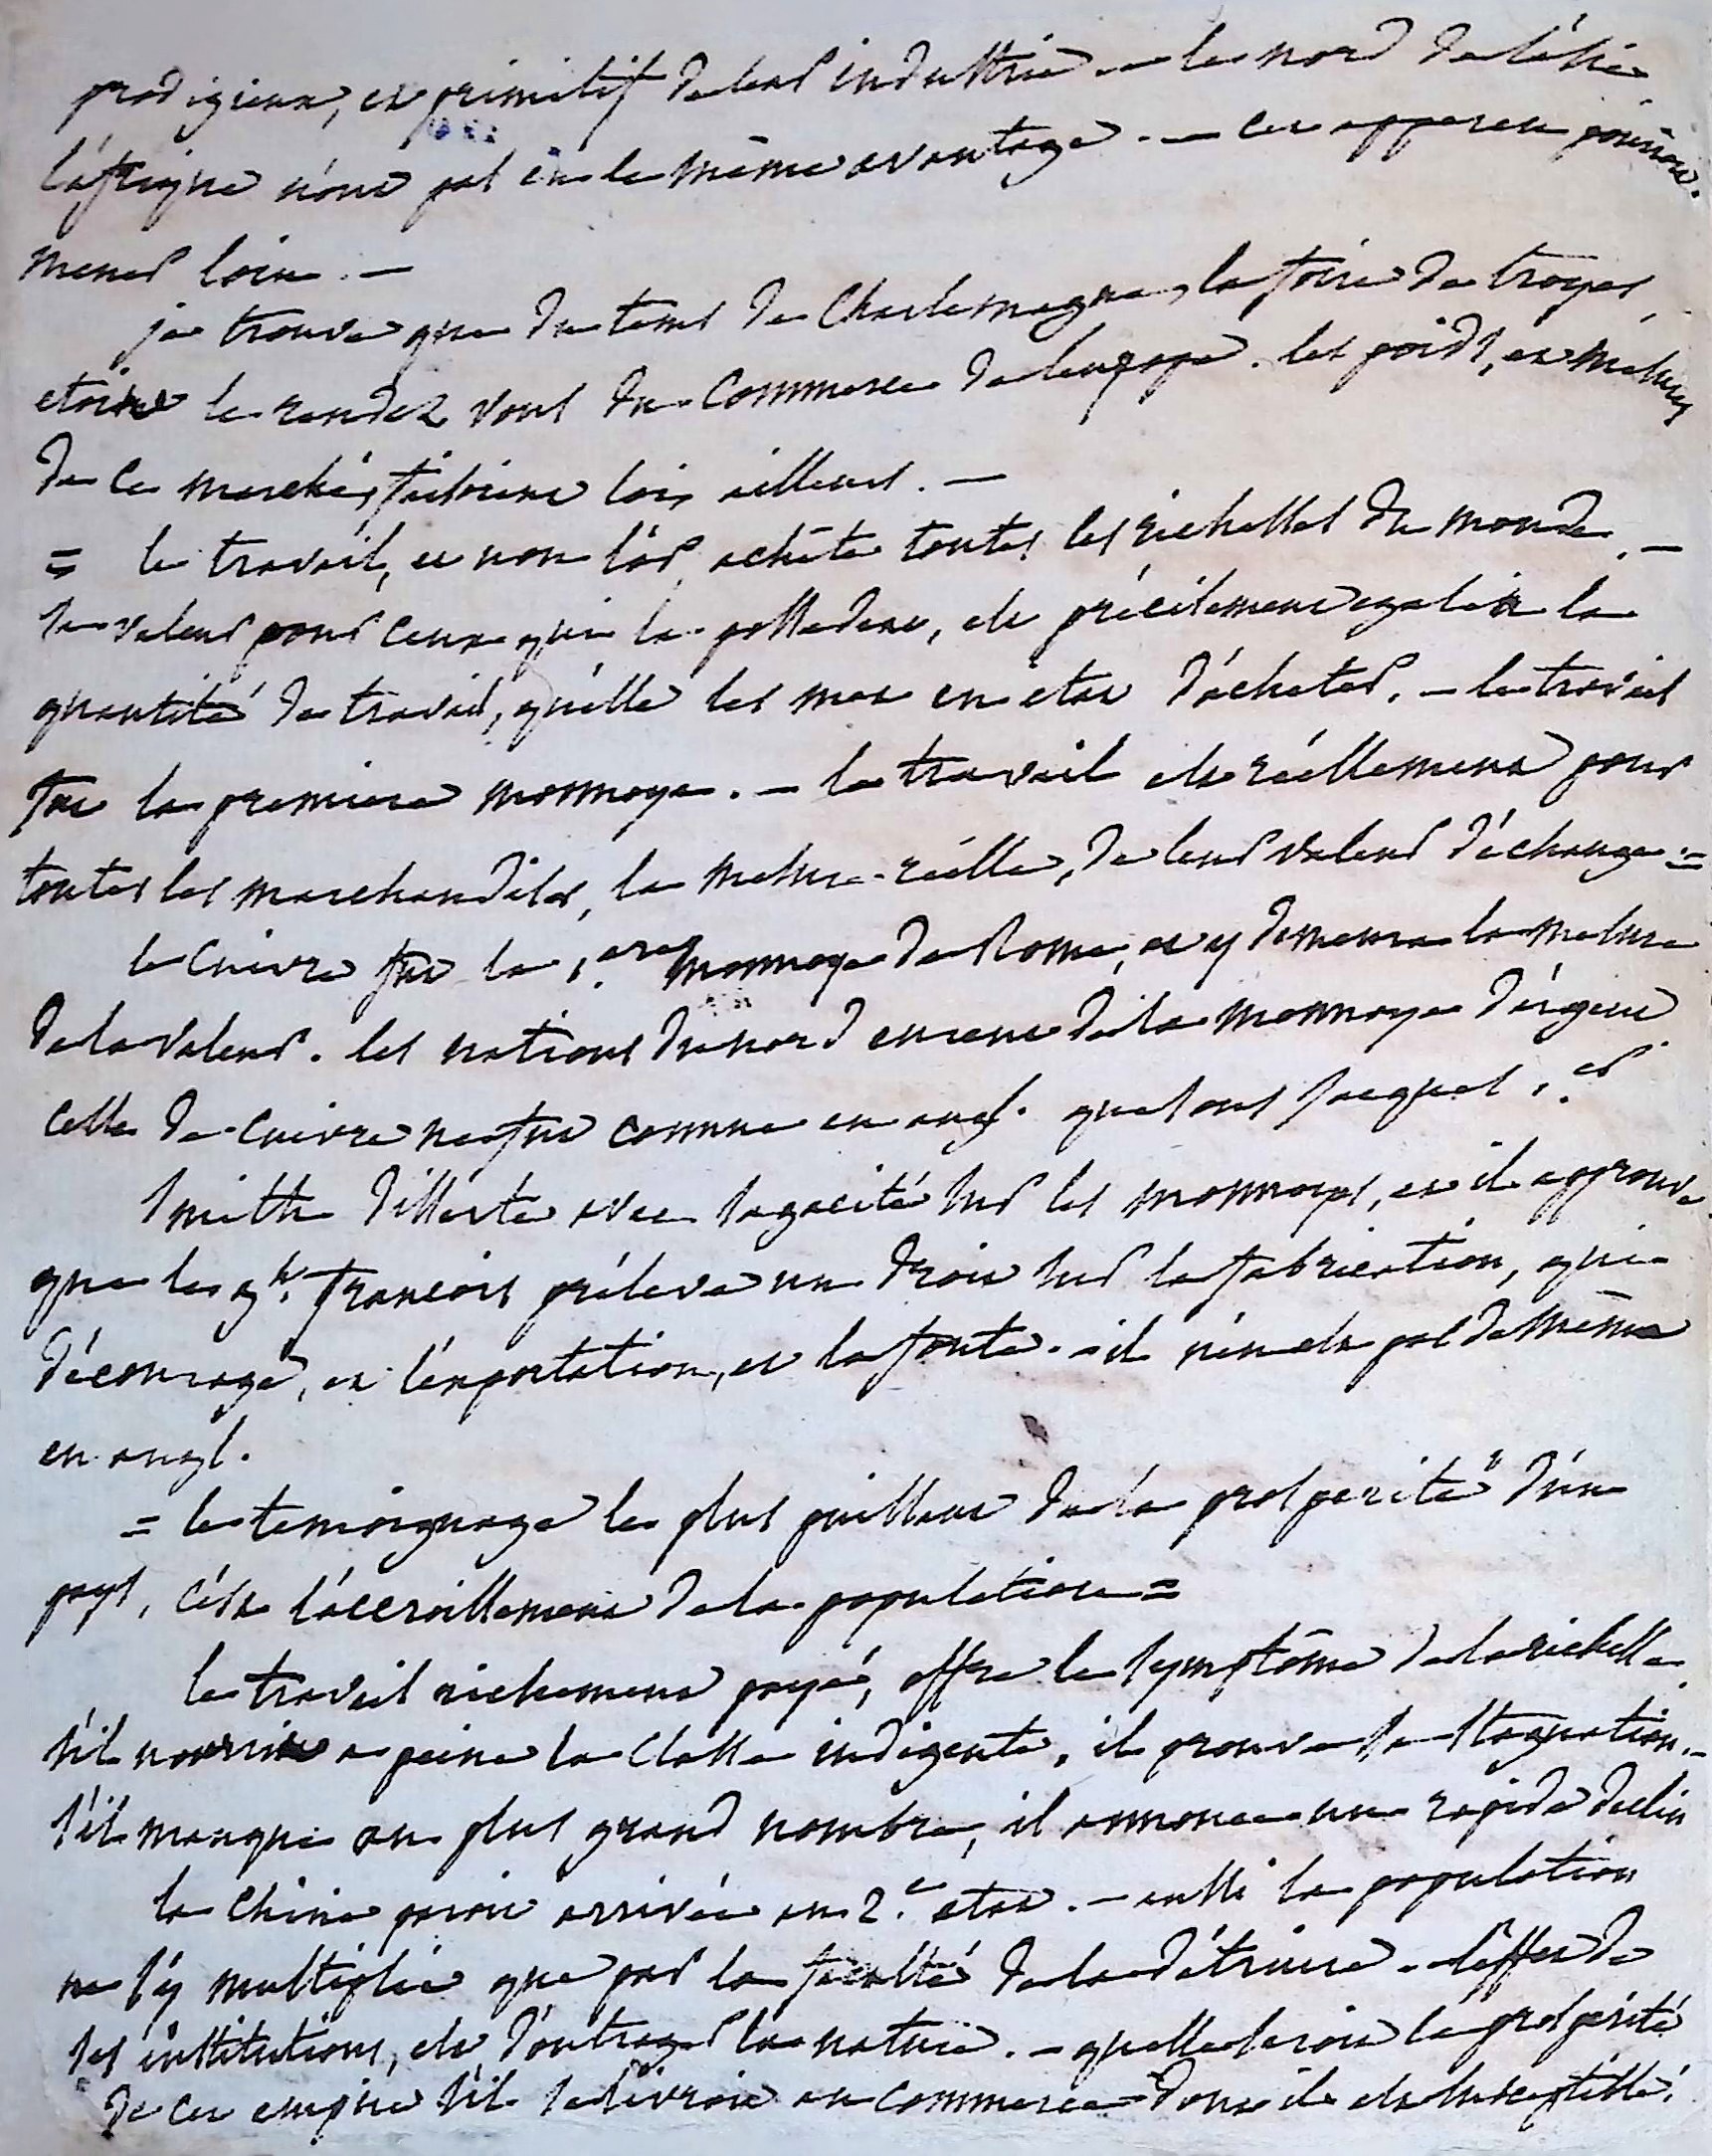 prodigieux, et primitif de leur industrie. — le nord de l'asie,
l'afrique n'ont pas eu le même avantage. — ces apperçus pourroient
mener loin. —
je trouve que du tems de Charlemagne, la foire de troyes,
etoit le rendez vous du Commerce de l'europe. les poids, et mesures
de ce marché, faisoient loix ailleurs. —
= le travail, et non l'or, achète toutes les richesses du monde. —
sa valeur pour ceux qui la possedent, est précisement egale à la
quantité de travail, qu'elle les met en etat d'acheter. — le travail
fut la premiere monnoye. — le travail est réellement pour
toutes les marchandises, la mesure réelle, de leur valeur d'échange. =
le Cuivre fut la 1.ere monnoye de Rome, et y demeura la mesure
de la valeur. les nations du nord eurent de la monnoye d'argent
celle de Cuivre ne fut connue en angl. que sous Jacques 1.er
Smith disserte avec sagacité sur les monnoyes, et il approuve
que le gt. françois prélève un droit sur la fabrication, qui
décourage, et l'exportation, et la fonte. — il n'en est pas de même
en angl.
= le temoignage le plus puissant de la prosperité d'un
pays, c'est l'accroissement de la population =
le travail richement payé, offre le symptôme de la richesse,
s'il nourrit a peine la Classe indigente, il prouve sa stagnation. —
s'il manque au plus grand nombre, il annonce un rapide declin
la Chine paroit arrivée au 2.e etat. — aussi la population
ne s'y multiplie que par la faculté de la détruire. — l'effet de
ses institutions, est d'outrager la nature. — quelle seroit la prospérité
de cet empire s'il se livroit au commerce = dont il est susceptible!